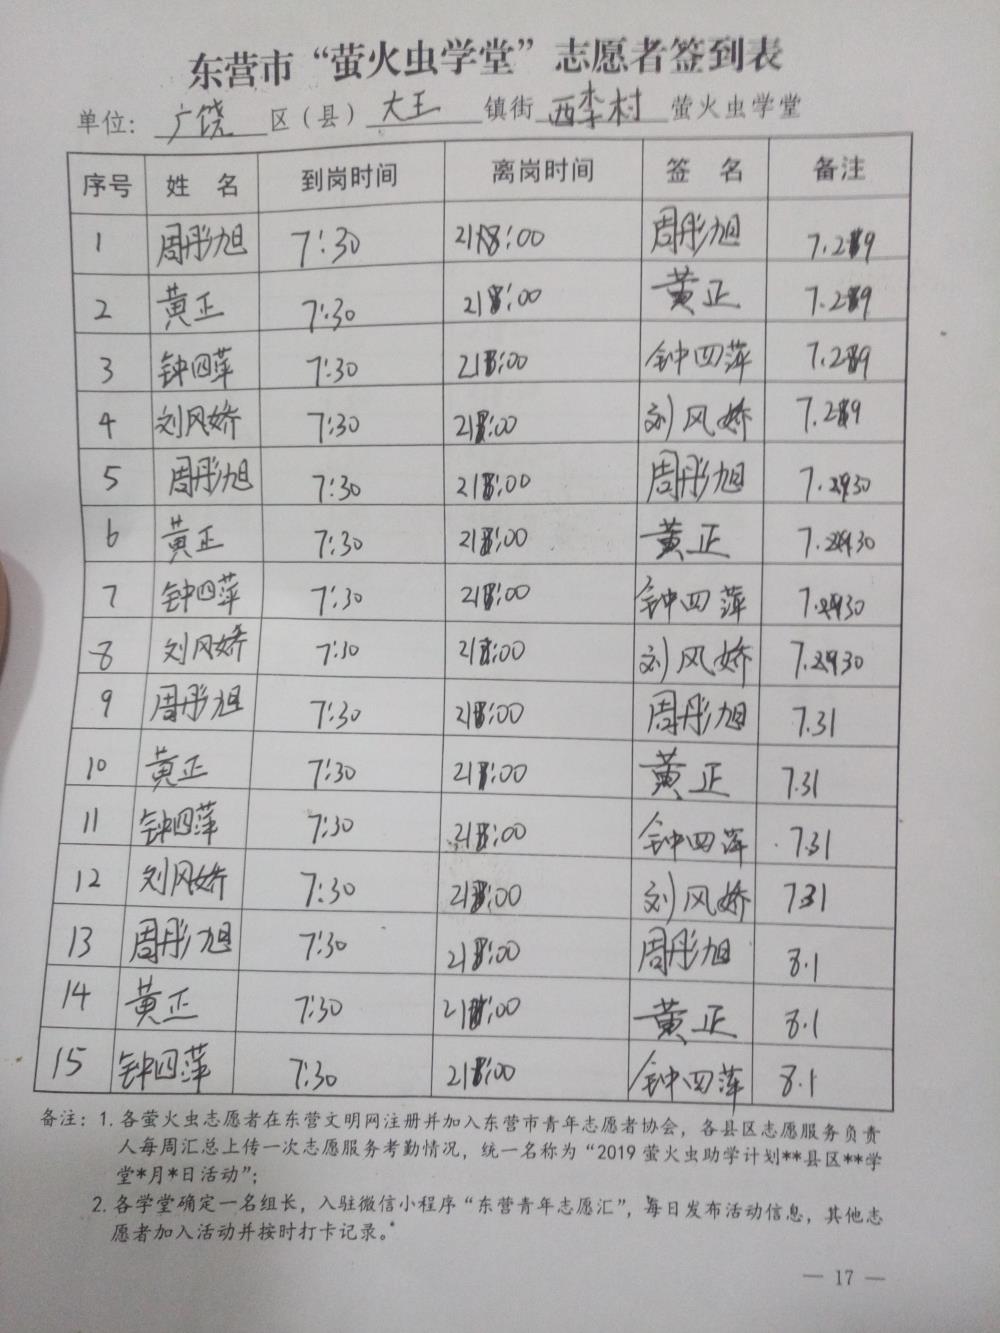 东营市“萤火虫学堂”志愿者签到表
单位：广饶区（县）大王镇街西李村萤火虫学堂
序号 姓 名 到岗时间 离岗时间 签 名 备注
1 周彤旭 7:30 周彤旭
2 黄正 7:30 黄正
3 钟四萍 7:30 钟四萍
4 刘风娇 7:30 刘风娇
5 周彤旭 7:30 周彤旭
6 黄正 7:30 黄正
7 钟四萍 7:30 钟四萍
8 刘风娇 7:30 刘风娇
9 周彤旭 7:30 周彤旭 7.31
10 黄正 7:30 黄正 7.31
11 钟四萍 7:30 钟四萍 7.31
12 刘风娇 7:30 刘风娇 7.31
13 周彤旭 7:30 周彤旭 8.1
14 黄正 7:30 黄正 8.1
15 钟四萍 7:30 钟四萍 8.1
备注：1. 各萤火虫志愿者在东营文明网注册并加入东营市青年志愿者协会，各县区志愿服务负责
人每周汇总上传一次志愿服务考勤情况，统一名称为“2019 萤火虫助学计划**县区**学
堂*月*日活动”；
2. 各学堂确定一名组长，入驻微信小程序“东营青年志愿汇”，每日发布活动信息，其他志
愿者加入活动并按时打卡记录。
— 17 —